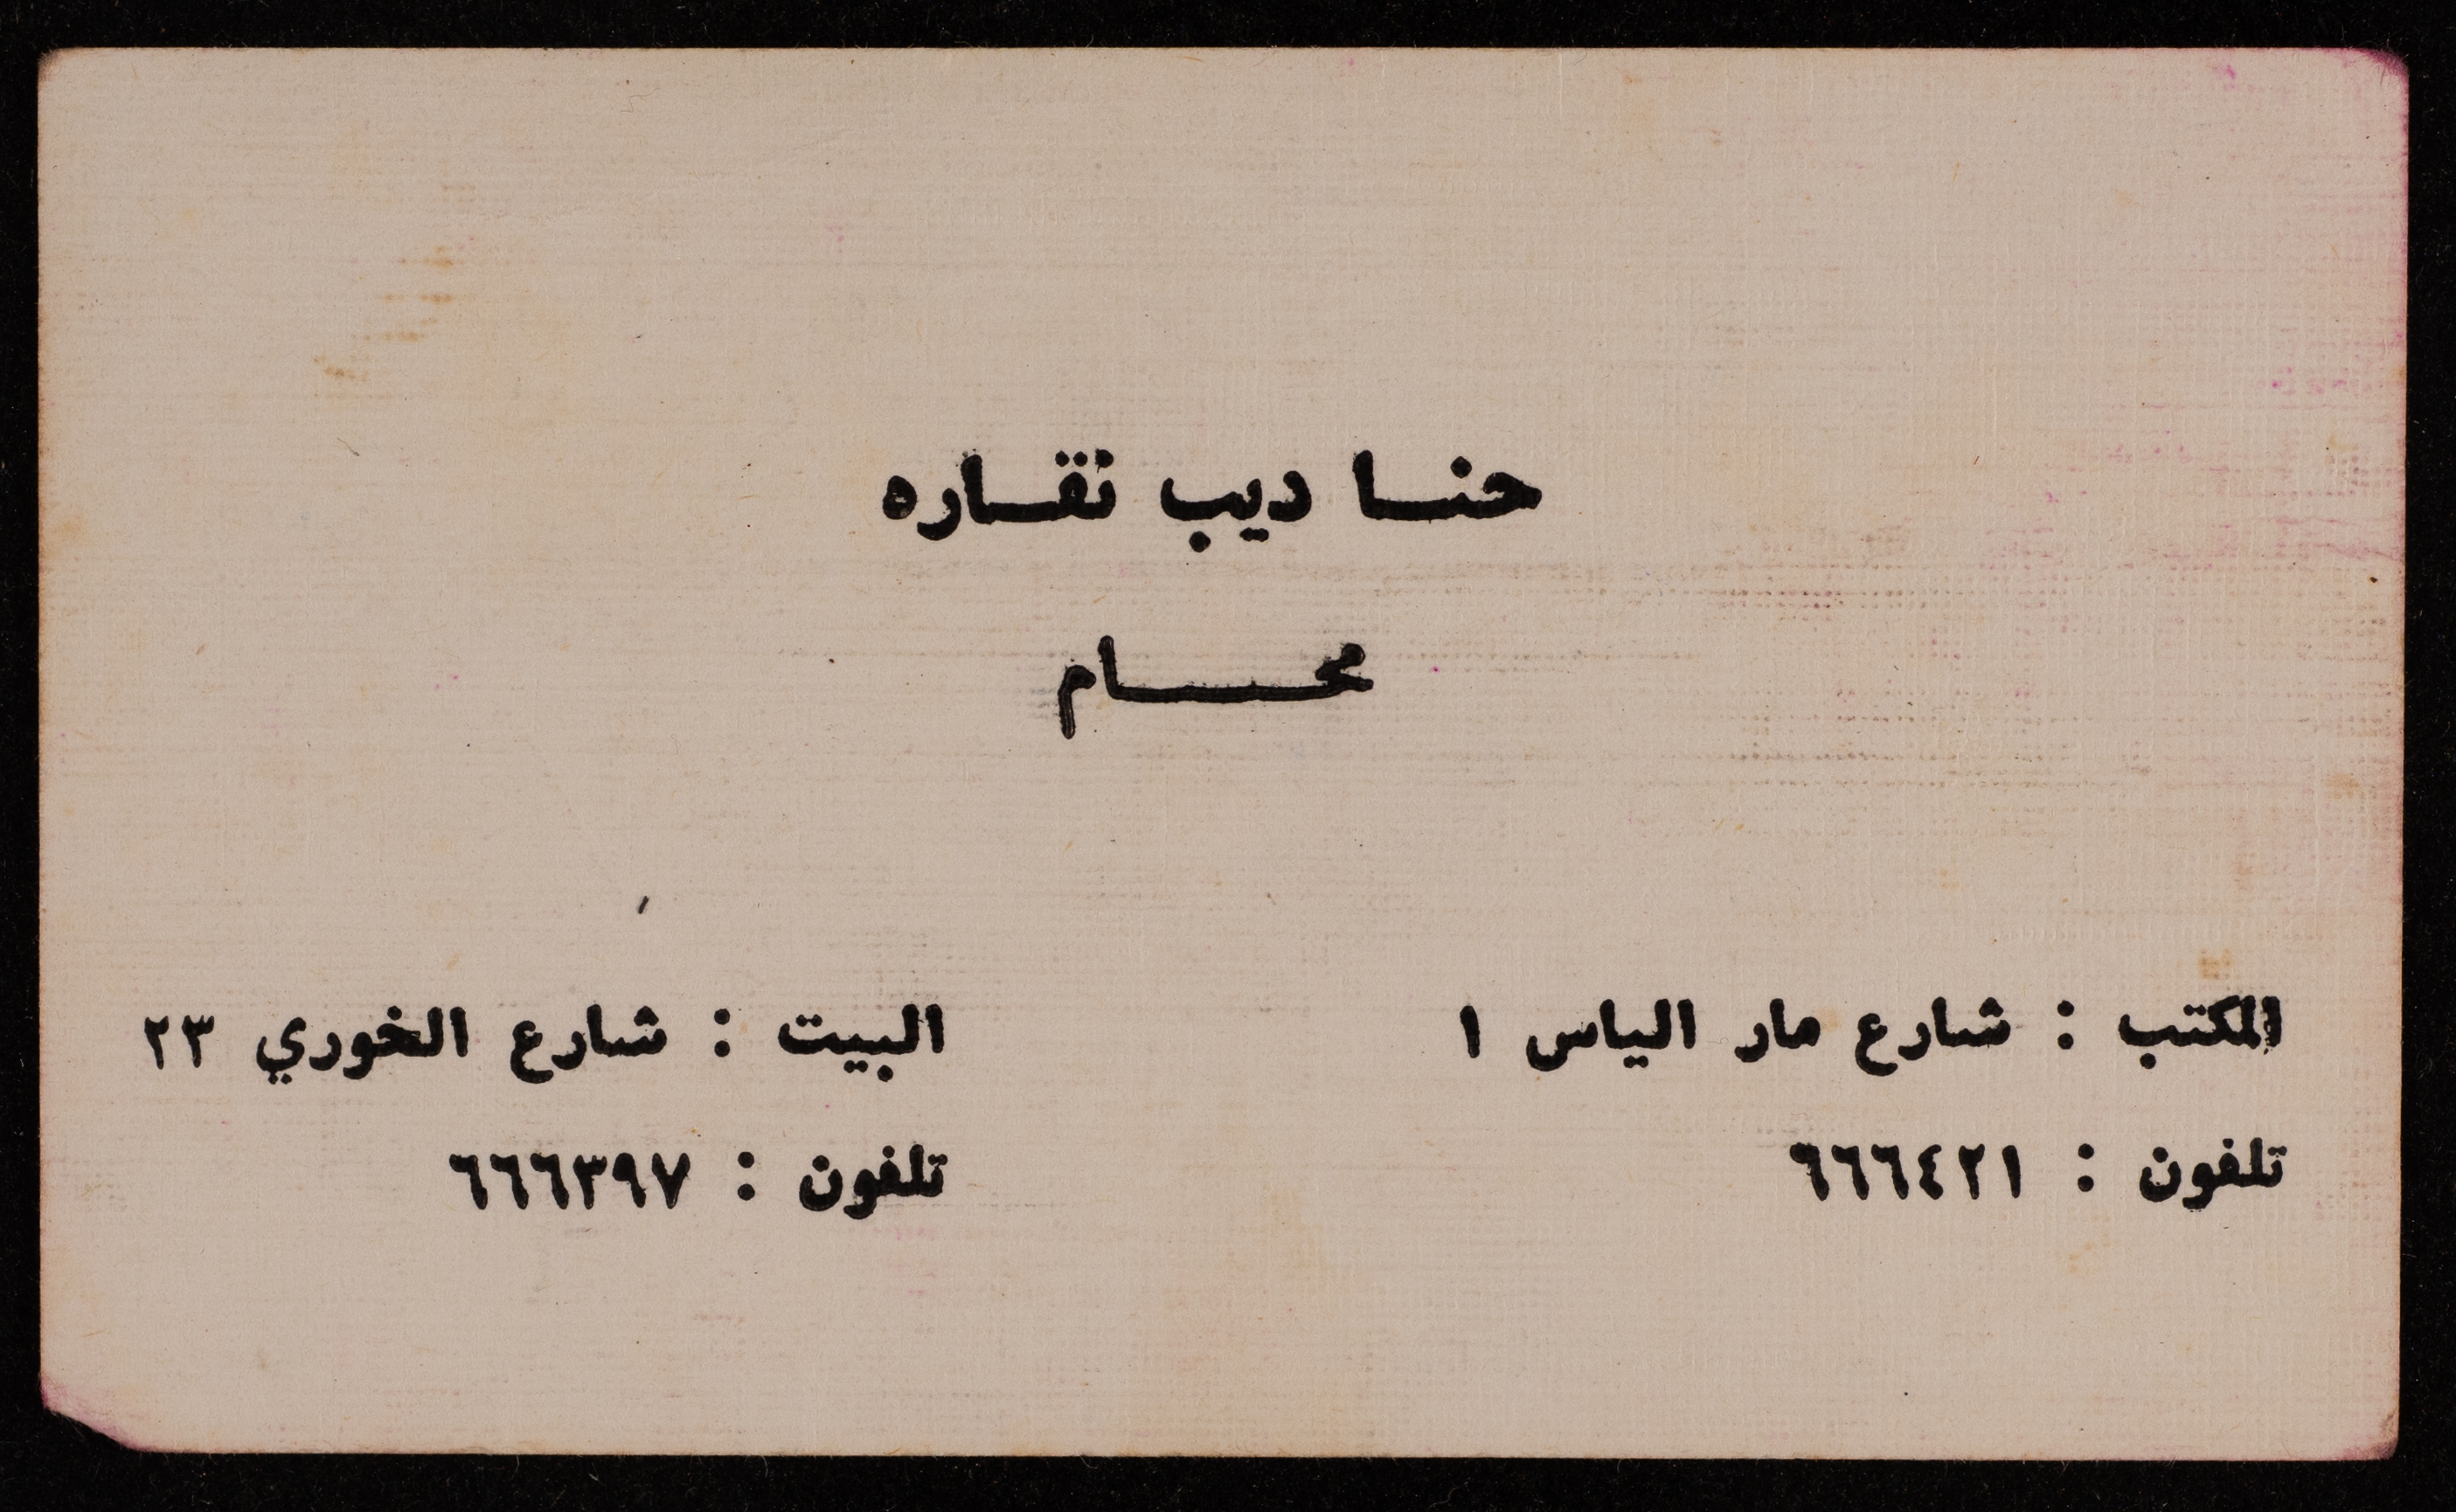 حنا ديب نقاره
محام
المكتب : شارع مار الياس ١
تلفون : ٦٦٦٤٢١
البيت : شارع الخوري ٢٣
تلفون : ٦٦٦٣٩٧